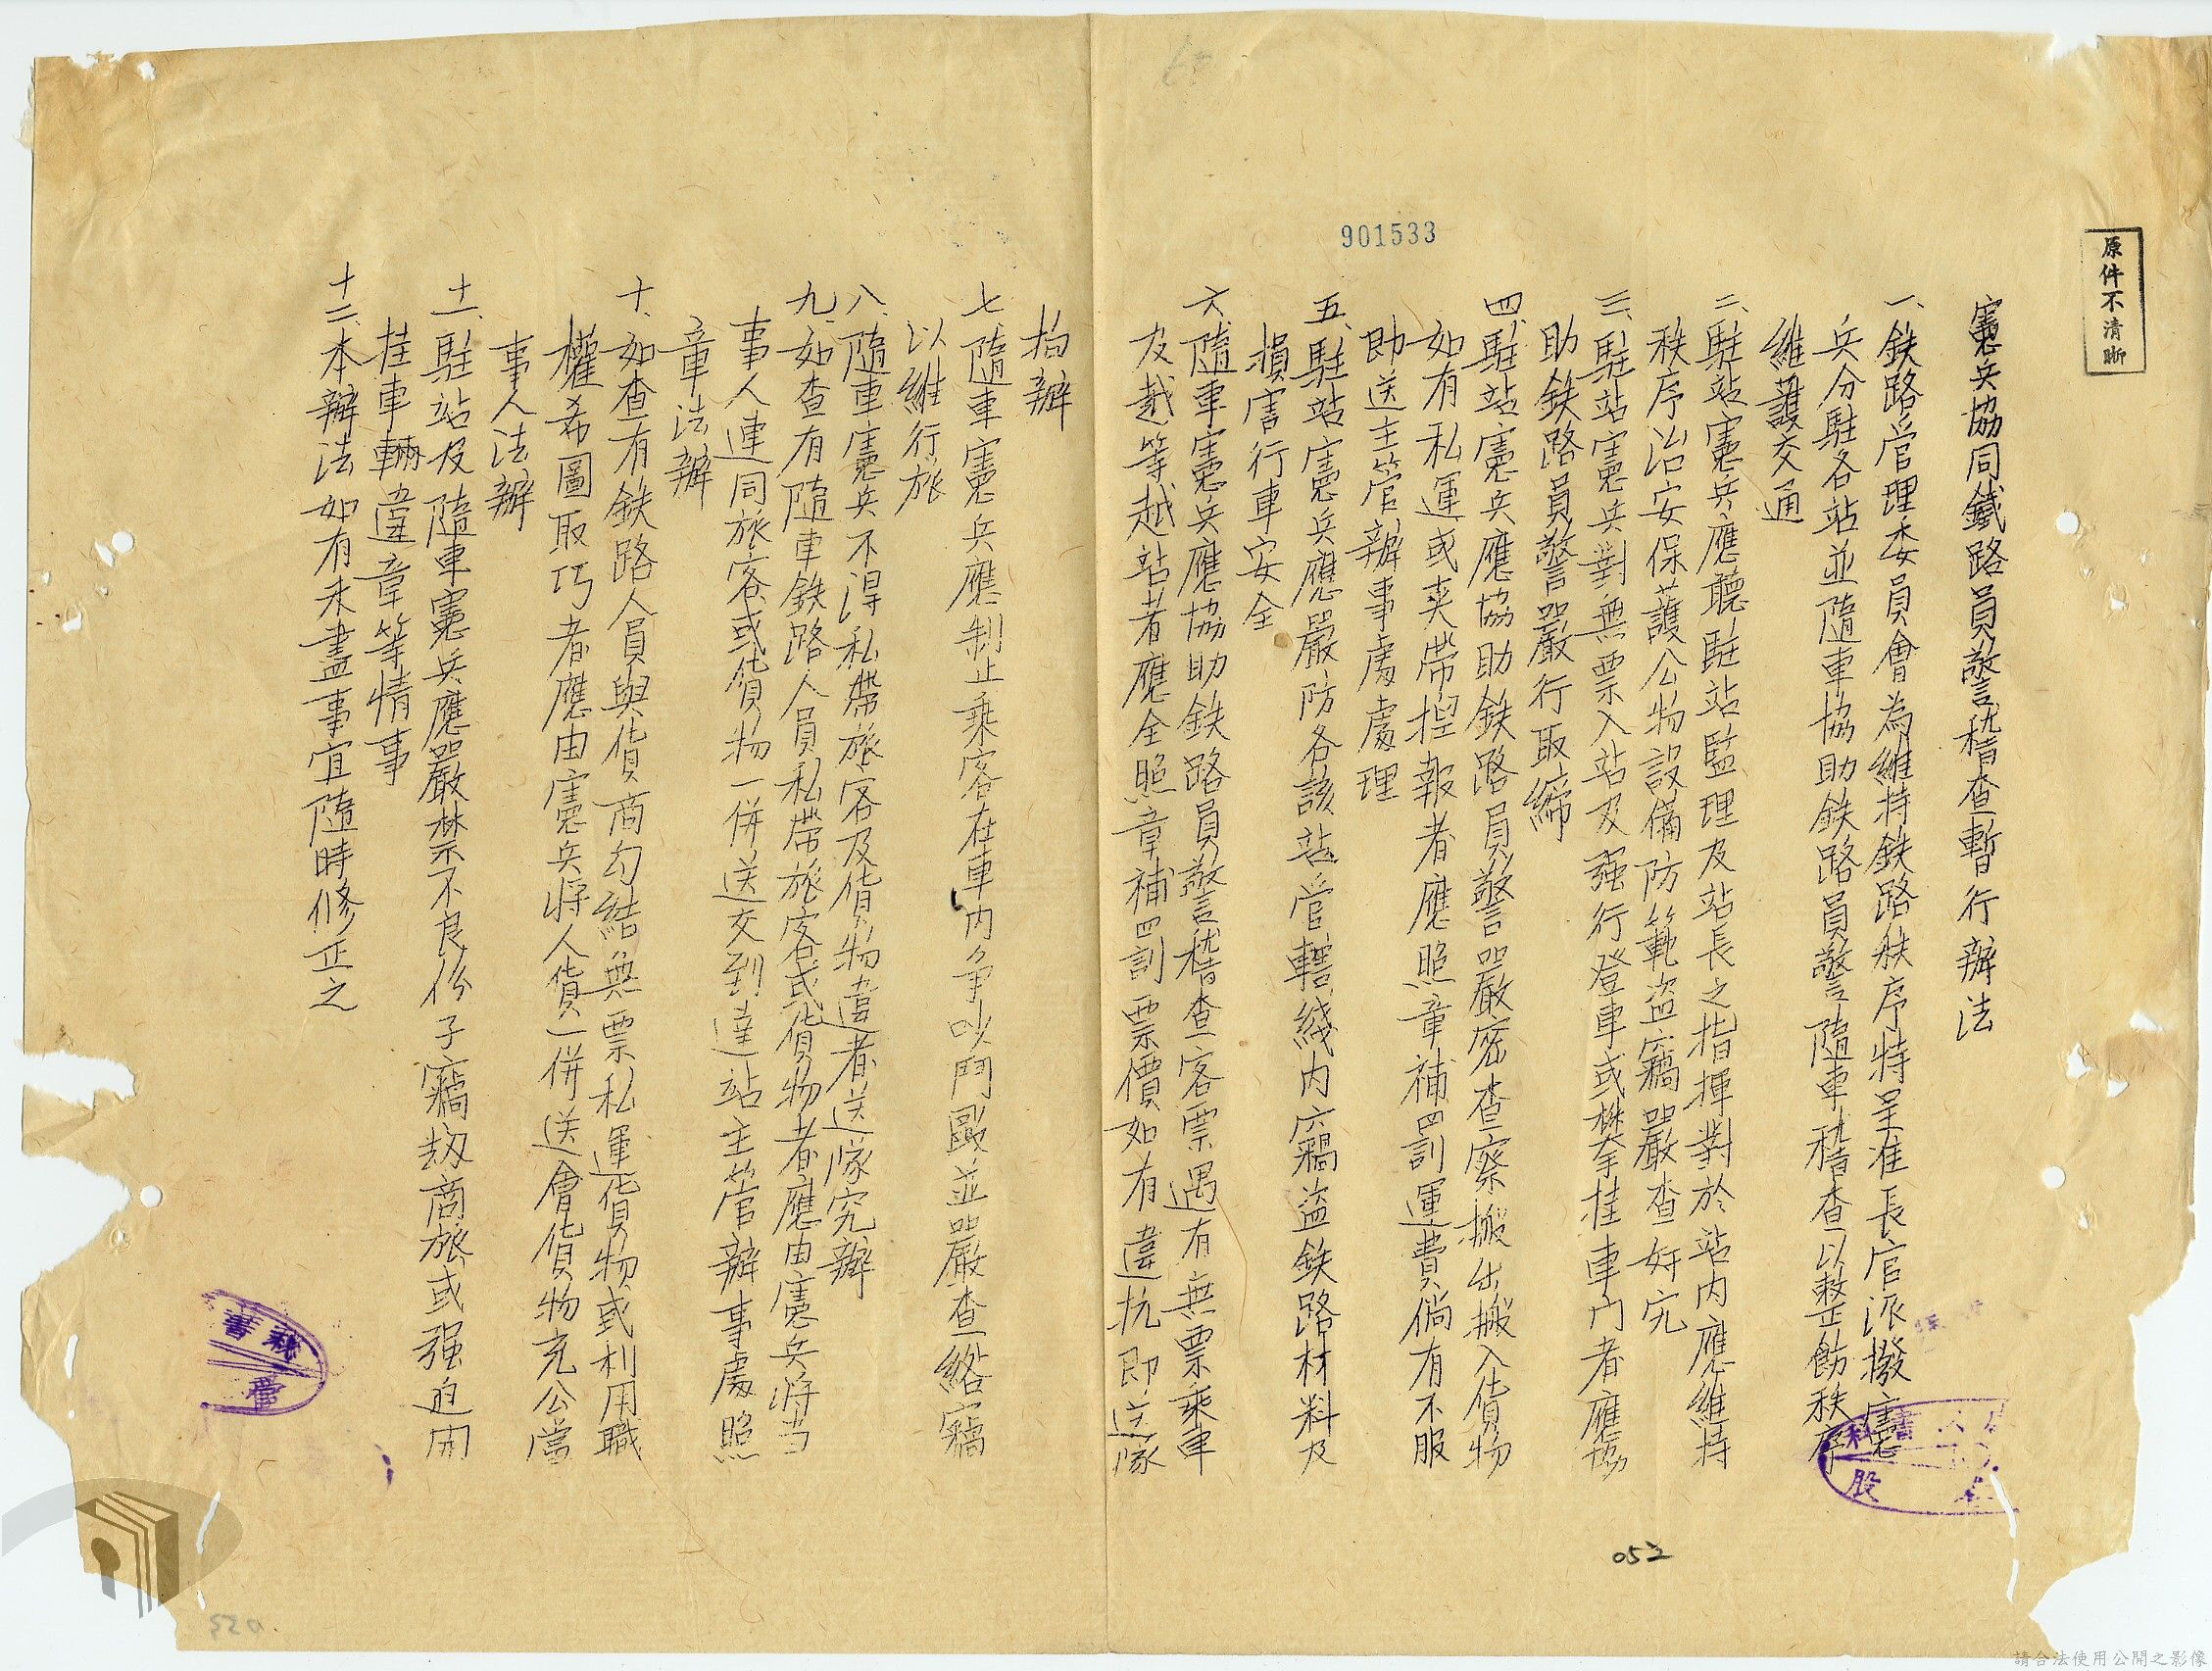 原件不清晰
901533
憲兵協同鐵路員警稽查暫行辦法
一、鉄路管理委員會為維持鉄路秩序特呈准長官派撥憲
兵分駐各站並隨車協助鉄路員警隨車稽查以整飭秩序
維護交通
二、駐站憲兵應聽駐站監理及站長之指揮對於站内應維持
秩序治安保護公物設備防範盜竊嚴查奸宄
三、駐站憲兵對無票入站及强行登車或攀挂車门者應協
助鉄路員警嚴行取締
四、駐站憲兵應協助鉄路員警嚴密查察搬出搬入貨物
如有私運或夾帶揑報者應照章補罰運費倘有不服
即送主管辦事處處理
五、駐站憲兵應嚴防各該站管轄綫内竊盜鉄路材料及
損害行車安全
六、隨車憲兵應協助鉄路員警稽查客票遇有無票乘車
及越等越站者應全照章補罰票價如有違抗即送隊
拘辦
七、隨車憲兵應制止乘客在車内争吵鬥毆並嚴查綹竊
以維行旅
八、隨車憲兵不得私帶旅客及貨物違者送隊究辦
九、如查有隨車鉄路人員私帶旅客或貨物者應由憲兵將当
事人連同旅客或貨物一併送交到達站主管辦事處照
章法辦
十、如查有鉄路人員與貨商勾結無票私運貨物或利用職
權希圖取巧者應由憲兵將人貨一併送會貨物充公當
事人法辦
十一、駐站及隨車憲兵應嚴禁不良份子竊刼商旅或强迫開
挂車輛違章等情事
十二、本辦法如有未盡事宜隨時修正之
052
請合法使用公開之影像